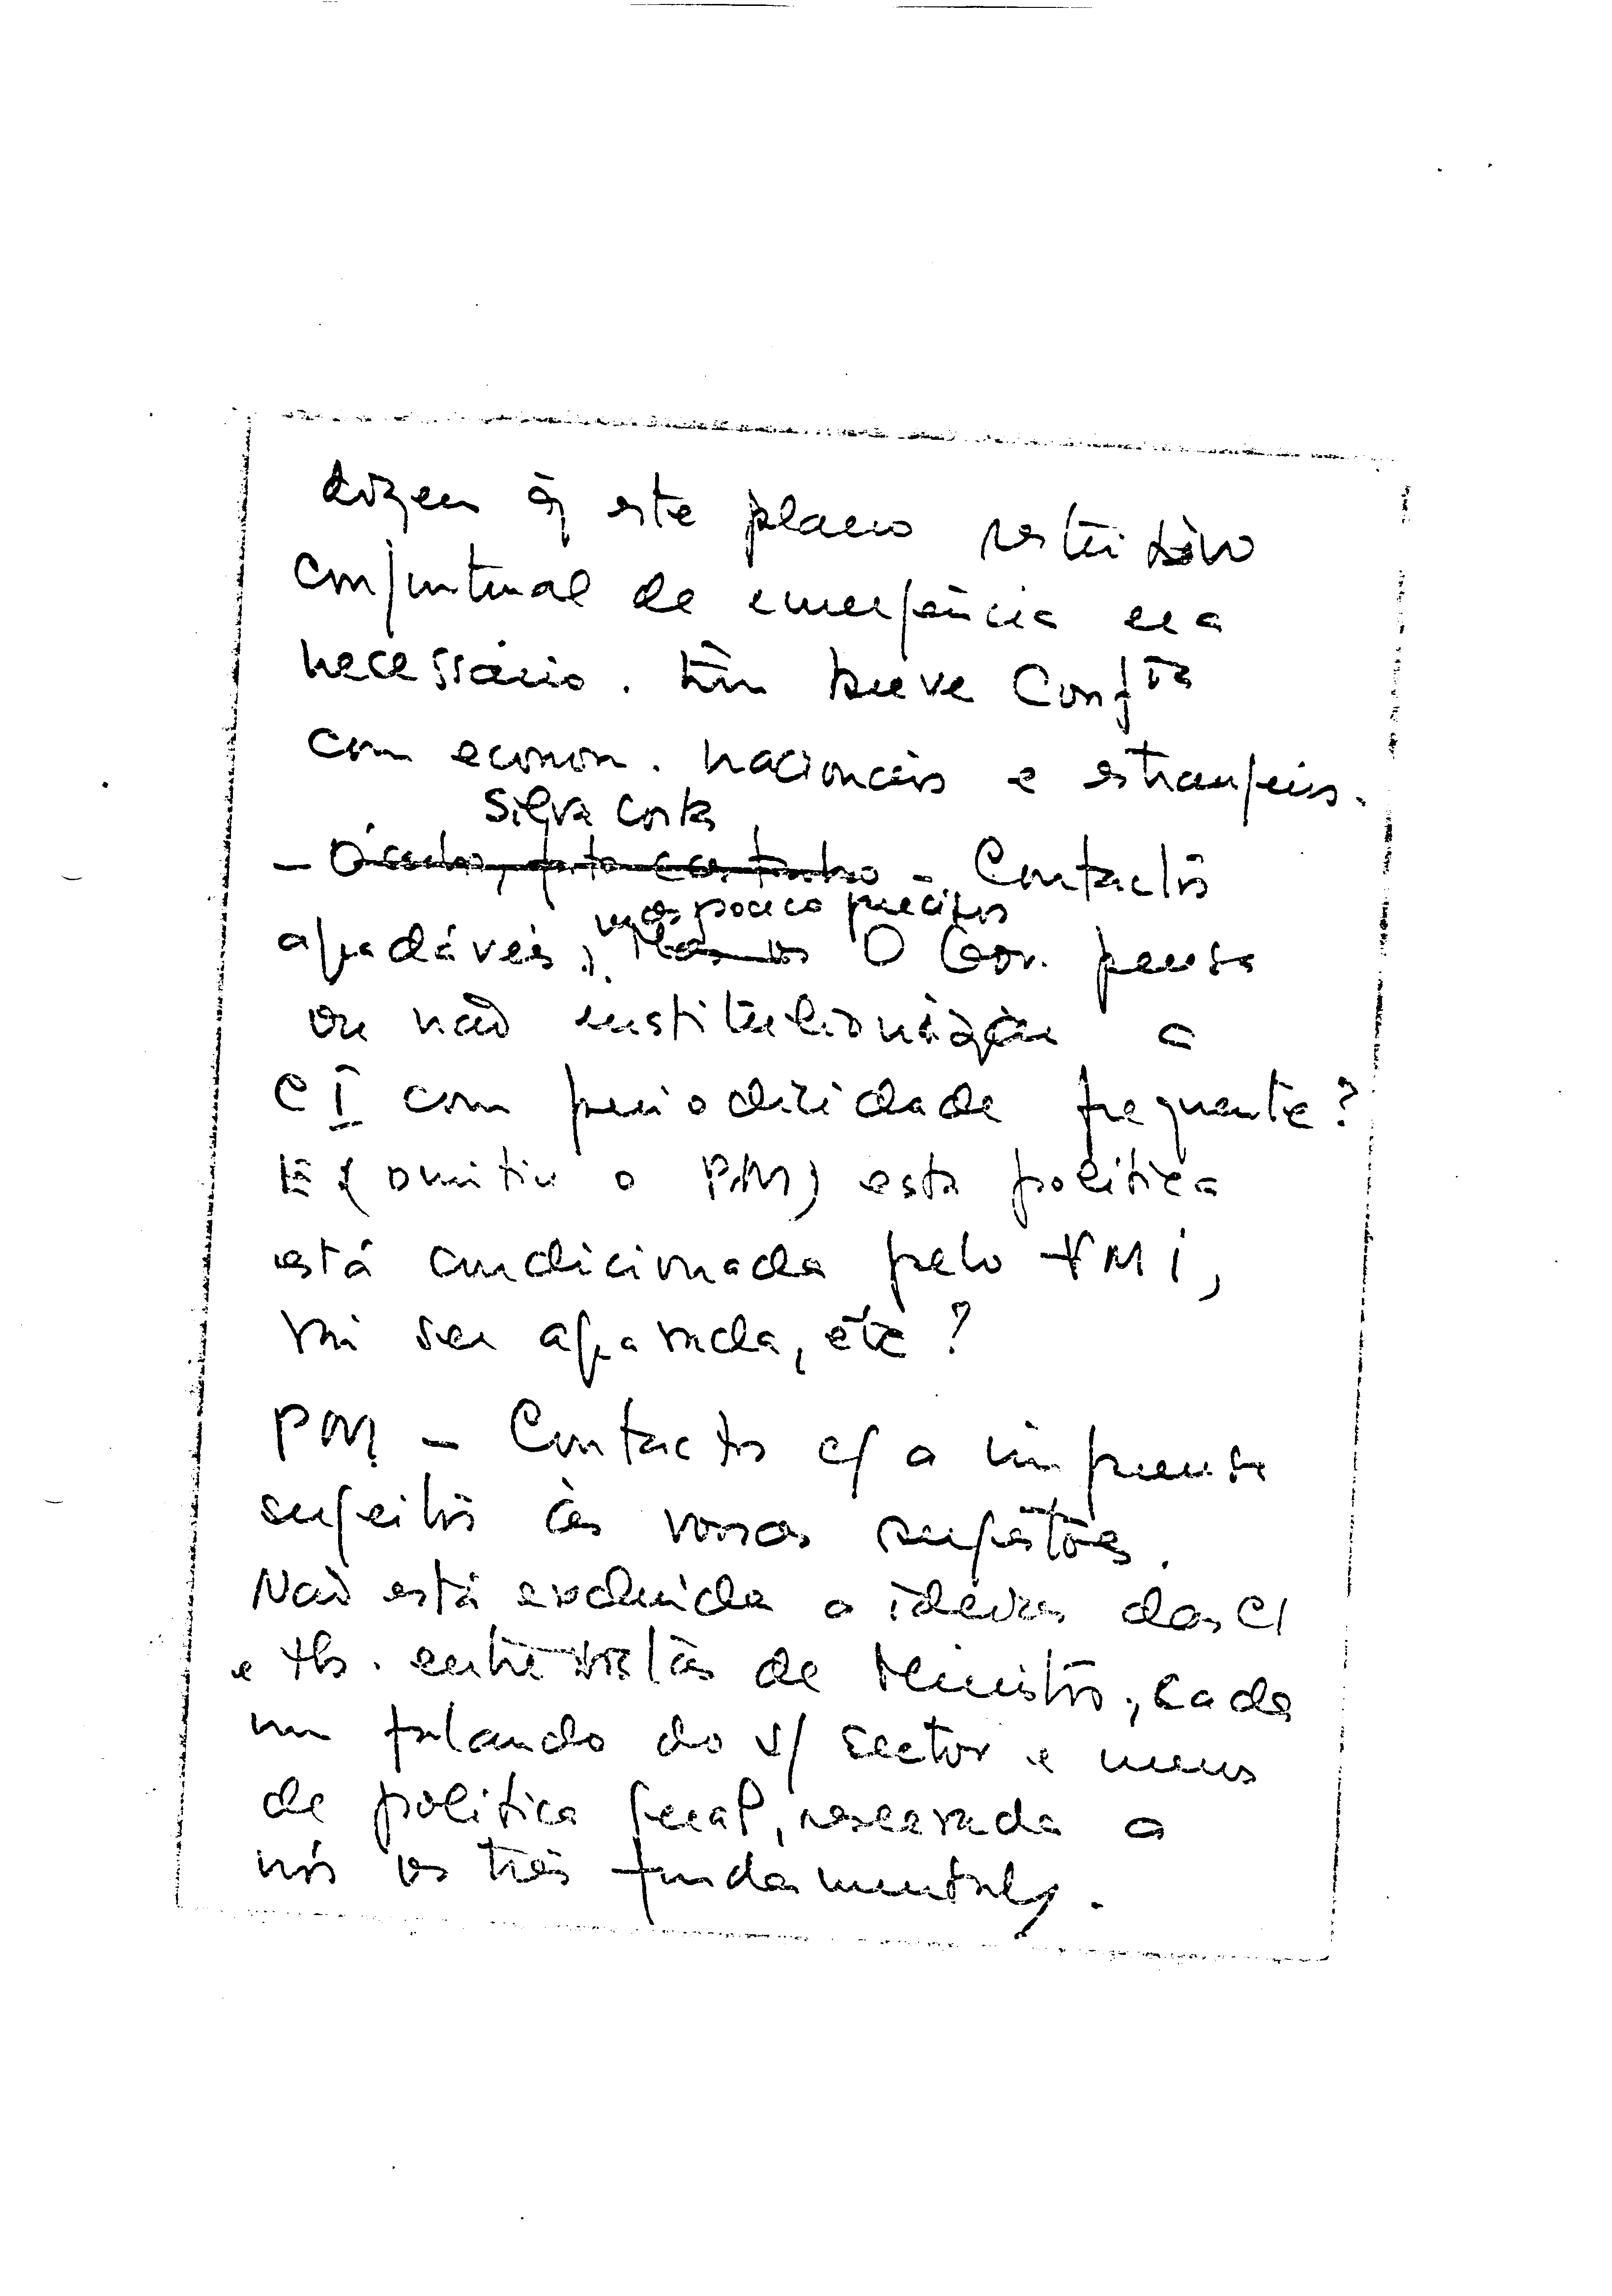 dizem q̃ este plano restritivo
conjuntural de emergência era
necessário. Em breve Confª
com econom. nacionais e estrangeiros.
Silva Costa
- - Contactos
mas pouco precisos
agradáveis, O Gov. pensa
ou não institucionalizar a
CI com periodicidade frequente?
E (omitiu o PM) esta política
está condicionada pelo FMI,
vai ser agravada, etc?
PM - Contactos c/ a imprensa
sujeitos às vossas sugestões.
Não está excluída a ideia das CI
e tb. entrevistas de Ministros, cada
um falando do s/ sector e menos
de política geral, reservada a
nós os três fundamentalmente.